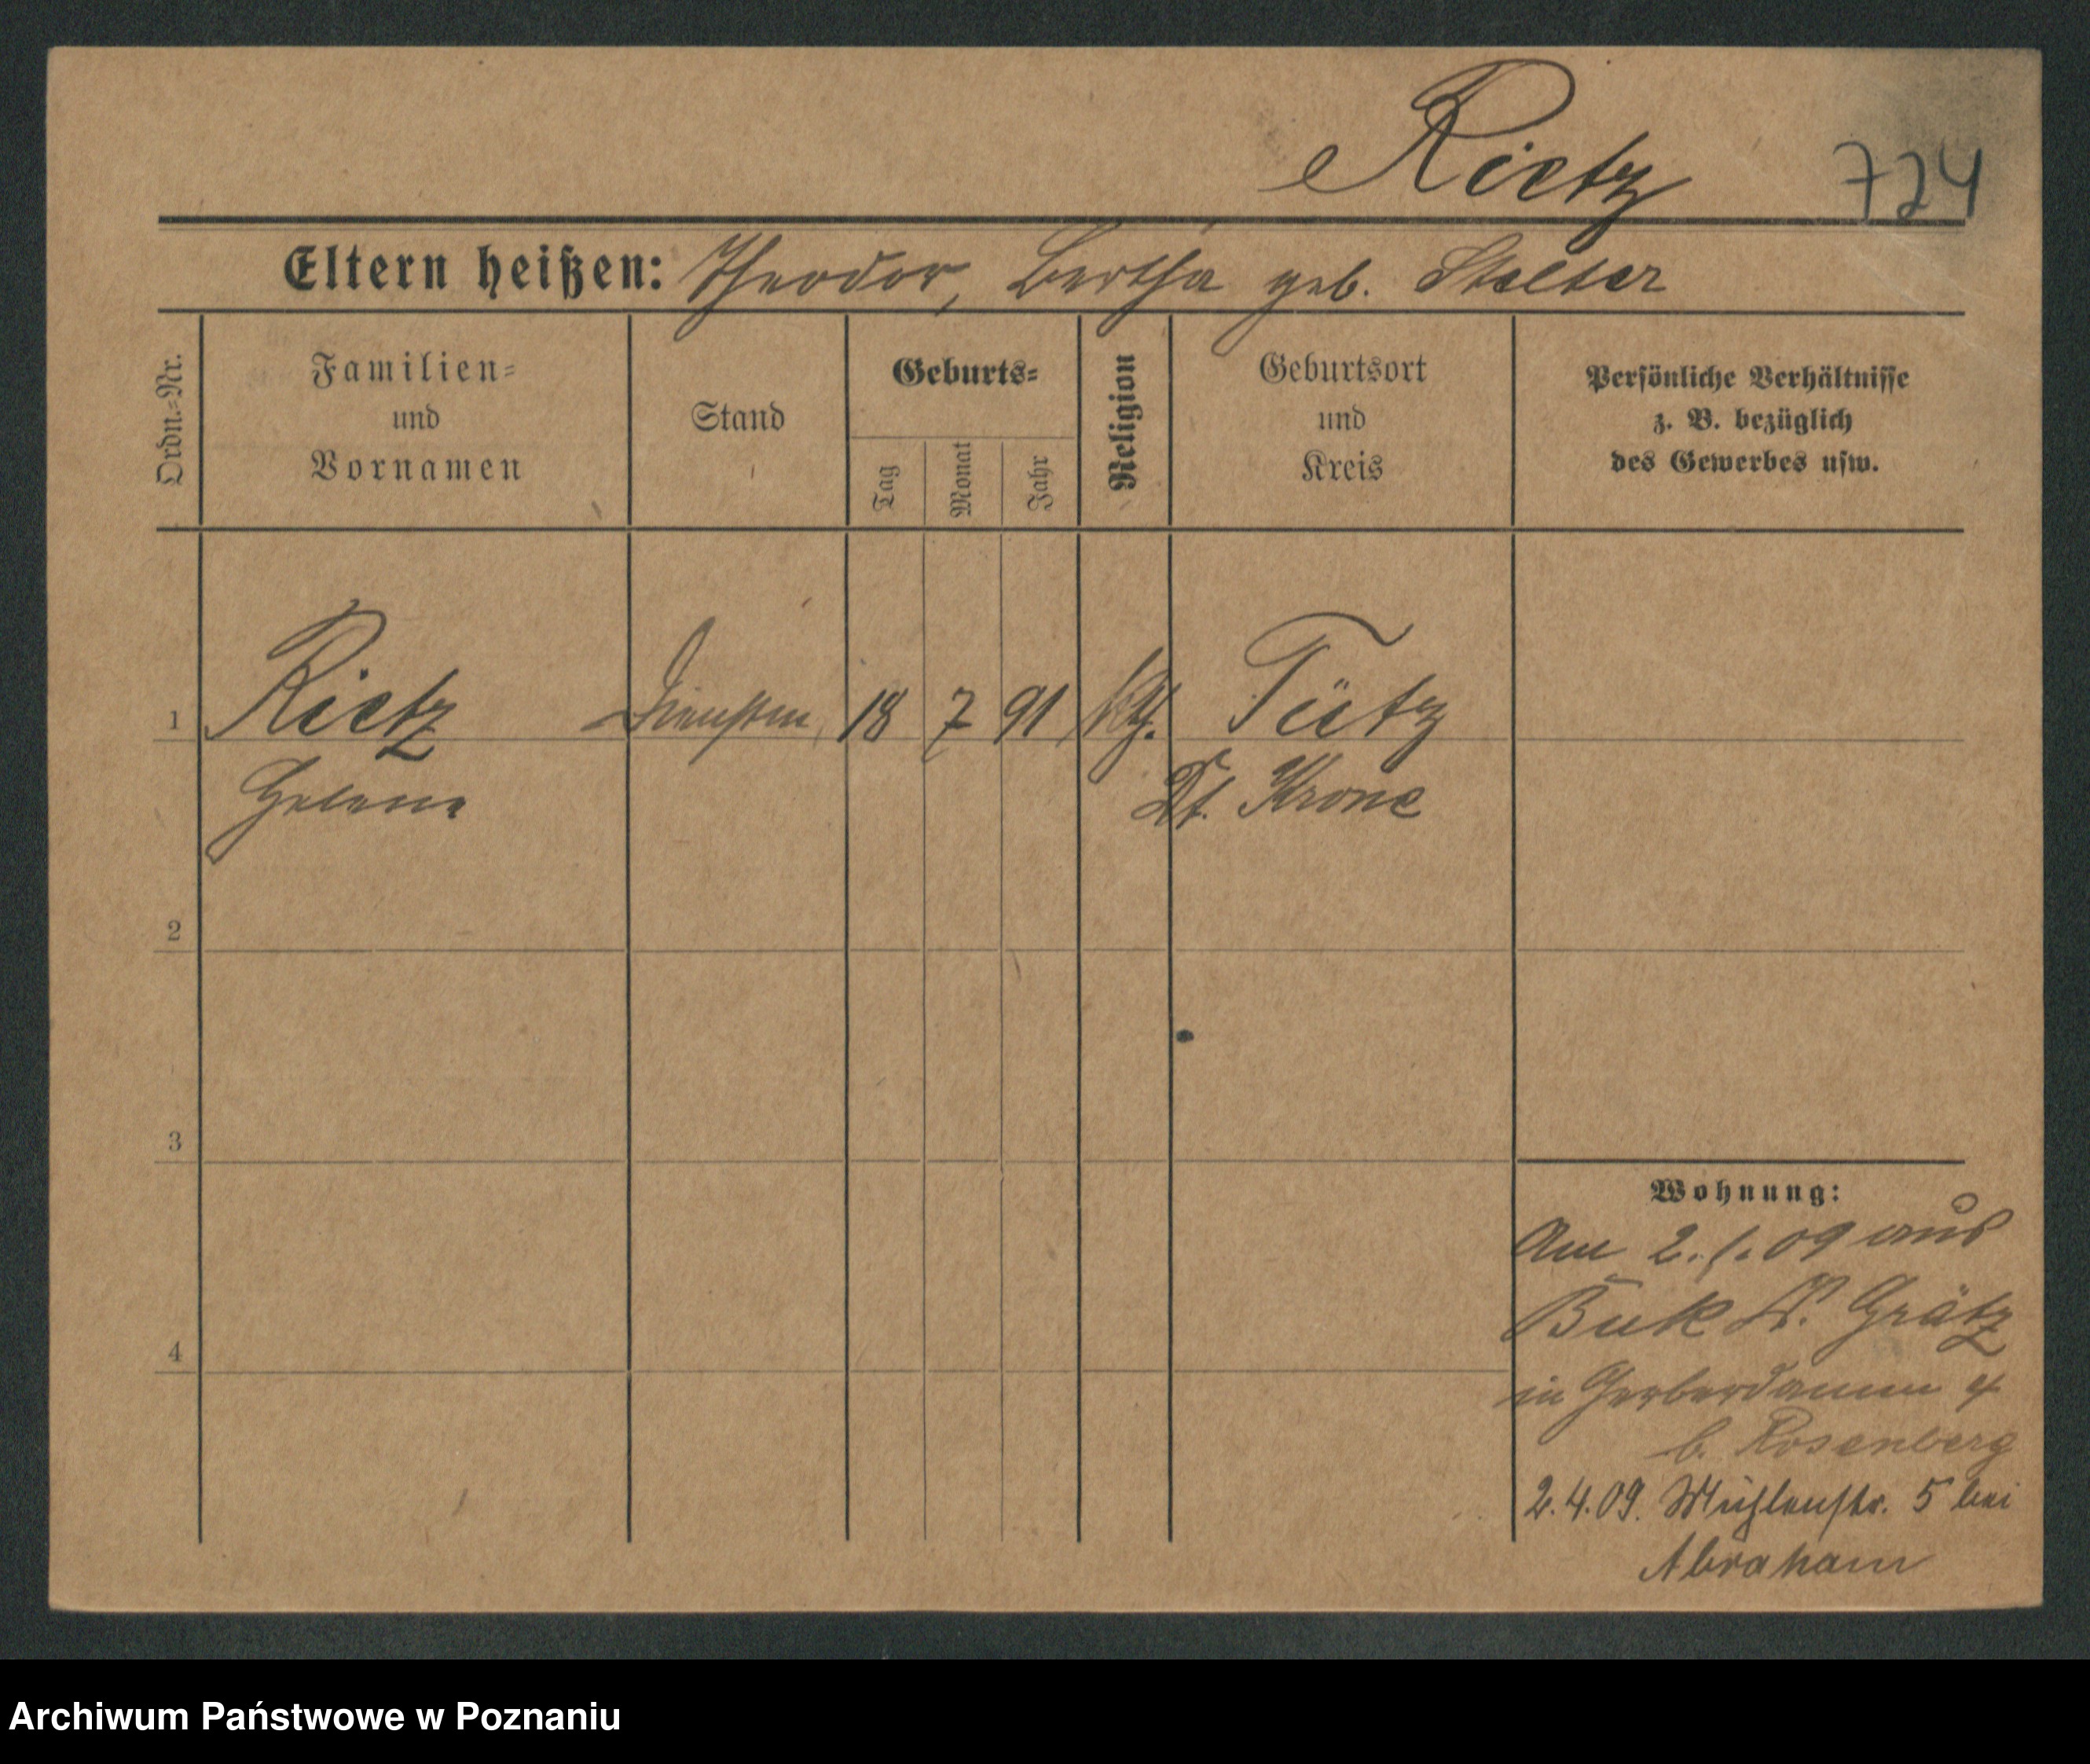 Rietz 724
Eltern heißen: Theodor, Bertha geb. Stelter
Ordn.=Nr.
Familien=
und
Vornamen
Stand
Geburts=
Tag
Monat
Jahr
Religion
Geburtsort
und
Kreis
Persönliche Verhältnisse
z. B. bezüglich
des Gewerbes usw.
1 Rietz 18 7 91 kth. Tütz
Helene Dt. Krone
2
3
4
Wohnung:
Am 2.1.09 aus
Buk Kr. Grätz
in Gerberdamm 4
b. Rosenberg
2.4.09. Mühlenstr. 5 bei
Abraham
Archiwum Państwowe w Poznaniu